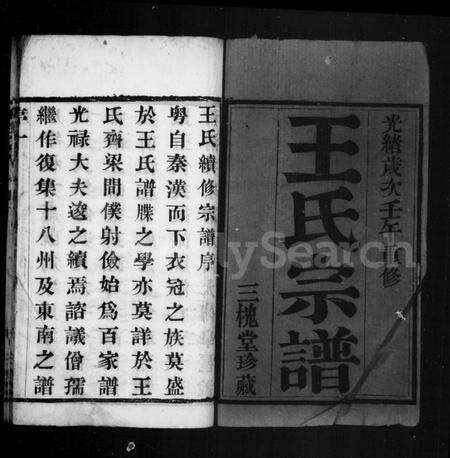 光緒歲次壬午重修
王氏宗譜
三槐堂珍藏
王氏續修宗譜序
粤自秦漢而下衣冠之族莫盛
於王氏譜牒之學亦莫詳於王
氏齊梁間僕射儉始爲百家譜
光禄大夫逡之續焉諮議僧孺
繼作復集十八州及東南之譜